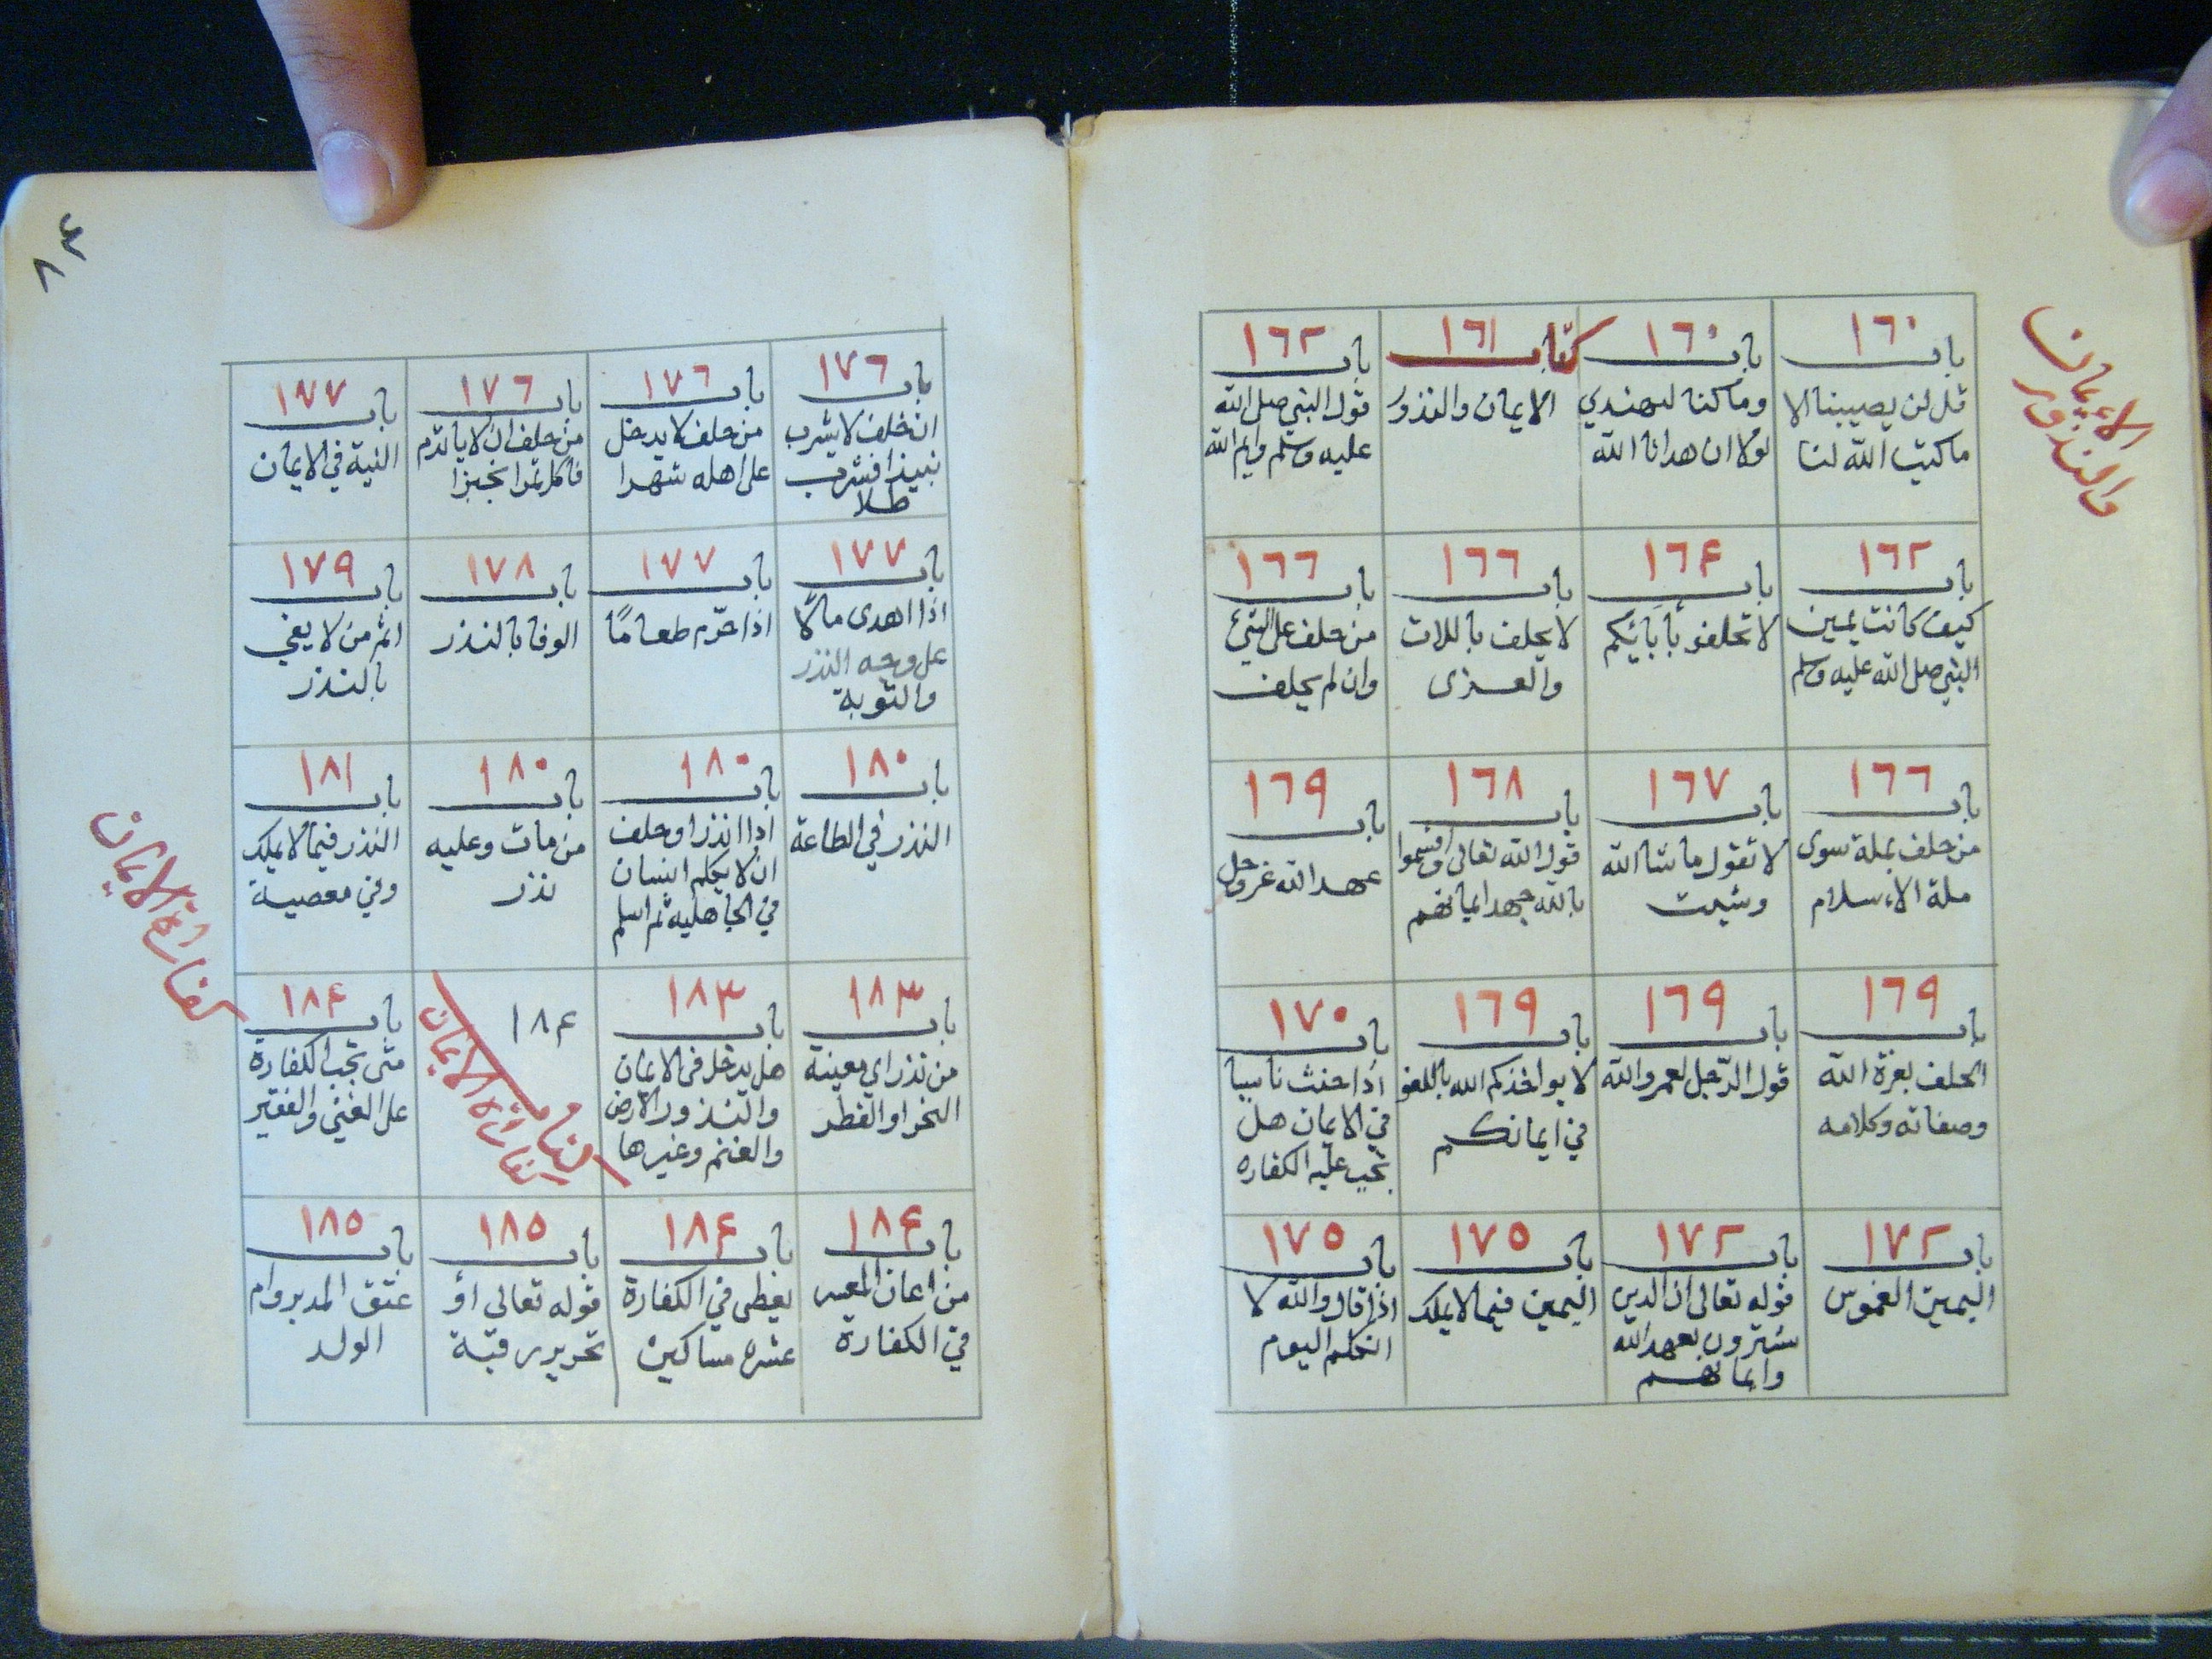 الايمان
والنذور
باب ١٦٠
قل لن يصيبنا الا
ما كتب الله لنا
باب ١٦٠
وما كنا لنهتدي
لولا ان هدانا الله
كتاب ١٦١
الايمان والنذور
باب ١٦٢
قول النبي صلى الله
عليه وسلم وايم الله
باب ١٦٢
كيف كانت يمين
النبي صلى الله عليه وسلم
باب ١٦۴
لا تحلفو بأبائيكم
باب ١٦٦
لا يحلف باللات
والعزى
باب ١٦٦
من حلف على الشيئ
وان لم يحلف
باب ١٦٦
من حلف بملة سوى
ملة الاسلام
باب ١٦٧
لا تقول ما شا الله
وشيت
باب ١٦٨
قول الله تعالى واقسموا
بالله جهد ايمانهم
باب ١٦٩
عهد الله عزوجل
باب ١٦٩
الحلف بعزة الله
وصفاته وكلامه
باب ١٦٩
قول الرّجل لعمر والله
باب ١٦٩
لا يواخذكم الله باللغو
في ايمانكم
باب ١٧٠
اذا حنث ناسيا
في الايمان هل
تجب عليه الكفاره
باب ١٧٢
اليمين الغموس
باب ١٧٢
قوله تعالى ان الذين
يشترون بعهد الله
وايمانهم
باب ١٧٥
اليمين فيما لا يملك
باب ١٧٥
اذا قال والله لا
اتكلم اليوم
٣٨
باب ١٧٦
ان حلف لا يشرب
نبيذا فشرب
طلا
باب ١٧٦
من حلف لا يدخل
على اهله شهرا
باب ١٧٦
من حلف ان لا ياتدم
فاكل تمرا بخبز
باب ١٧٧
النية في الايمان
باب ١٧٧
اذا اهدى مالًا
على وجه النذر
والتوبة
باب ١٧٧
اذا حرّم طعامًا
باب ١٧٨
الوفا بالنذر
باب ١٧٩
اثم من لا يفي
بالنذر
باب ١٨٠
النذر في الطاعة
باب ١٨٠
اذا نذر او حلف
ان لا يكلم انسان
في الجاهلية ثم اسلم
باب ١٨٠
من مات وعليه
نذر
باب ١٨١
النذر فيما لا يملك
وفي معصية
باب ١٨٣
من نذر اي معينة
النحر او الفطر
باب ١٨٣
هل يدخل في الايمان
والنذور الارض
والغنم وغيرها
١٨۴
كفارة الايمان
باب ١٨۴
متى تجب الكفارة
على الغني والفقير
كفارة الايمان
باب ١٨۴
من اعان المعسر
في الكفارة
باب ١٨۴
يعطى في الكفارة
عشره مساكين
باب ١٨٥
قوله تعالى أو
تحرير رقبة
باب ١٨٥
عتق المدبر وام
الولد